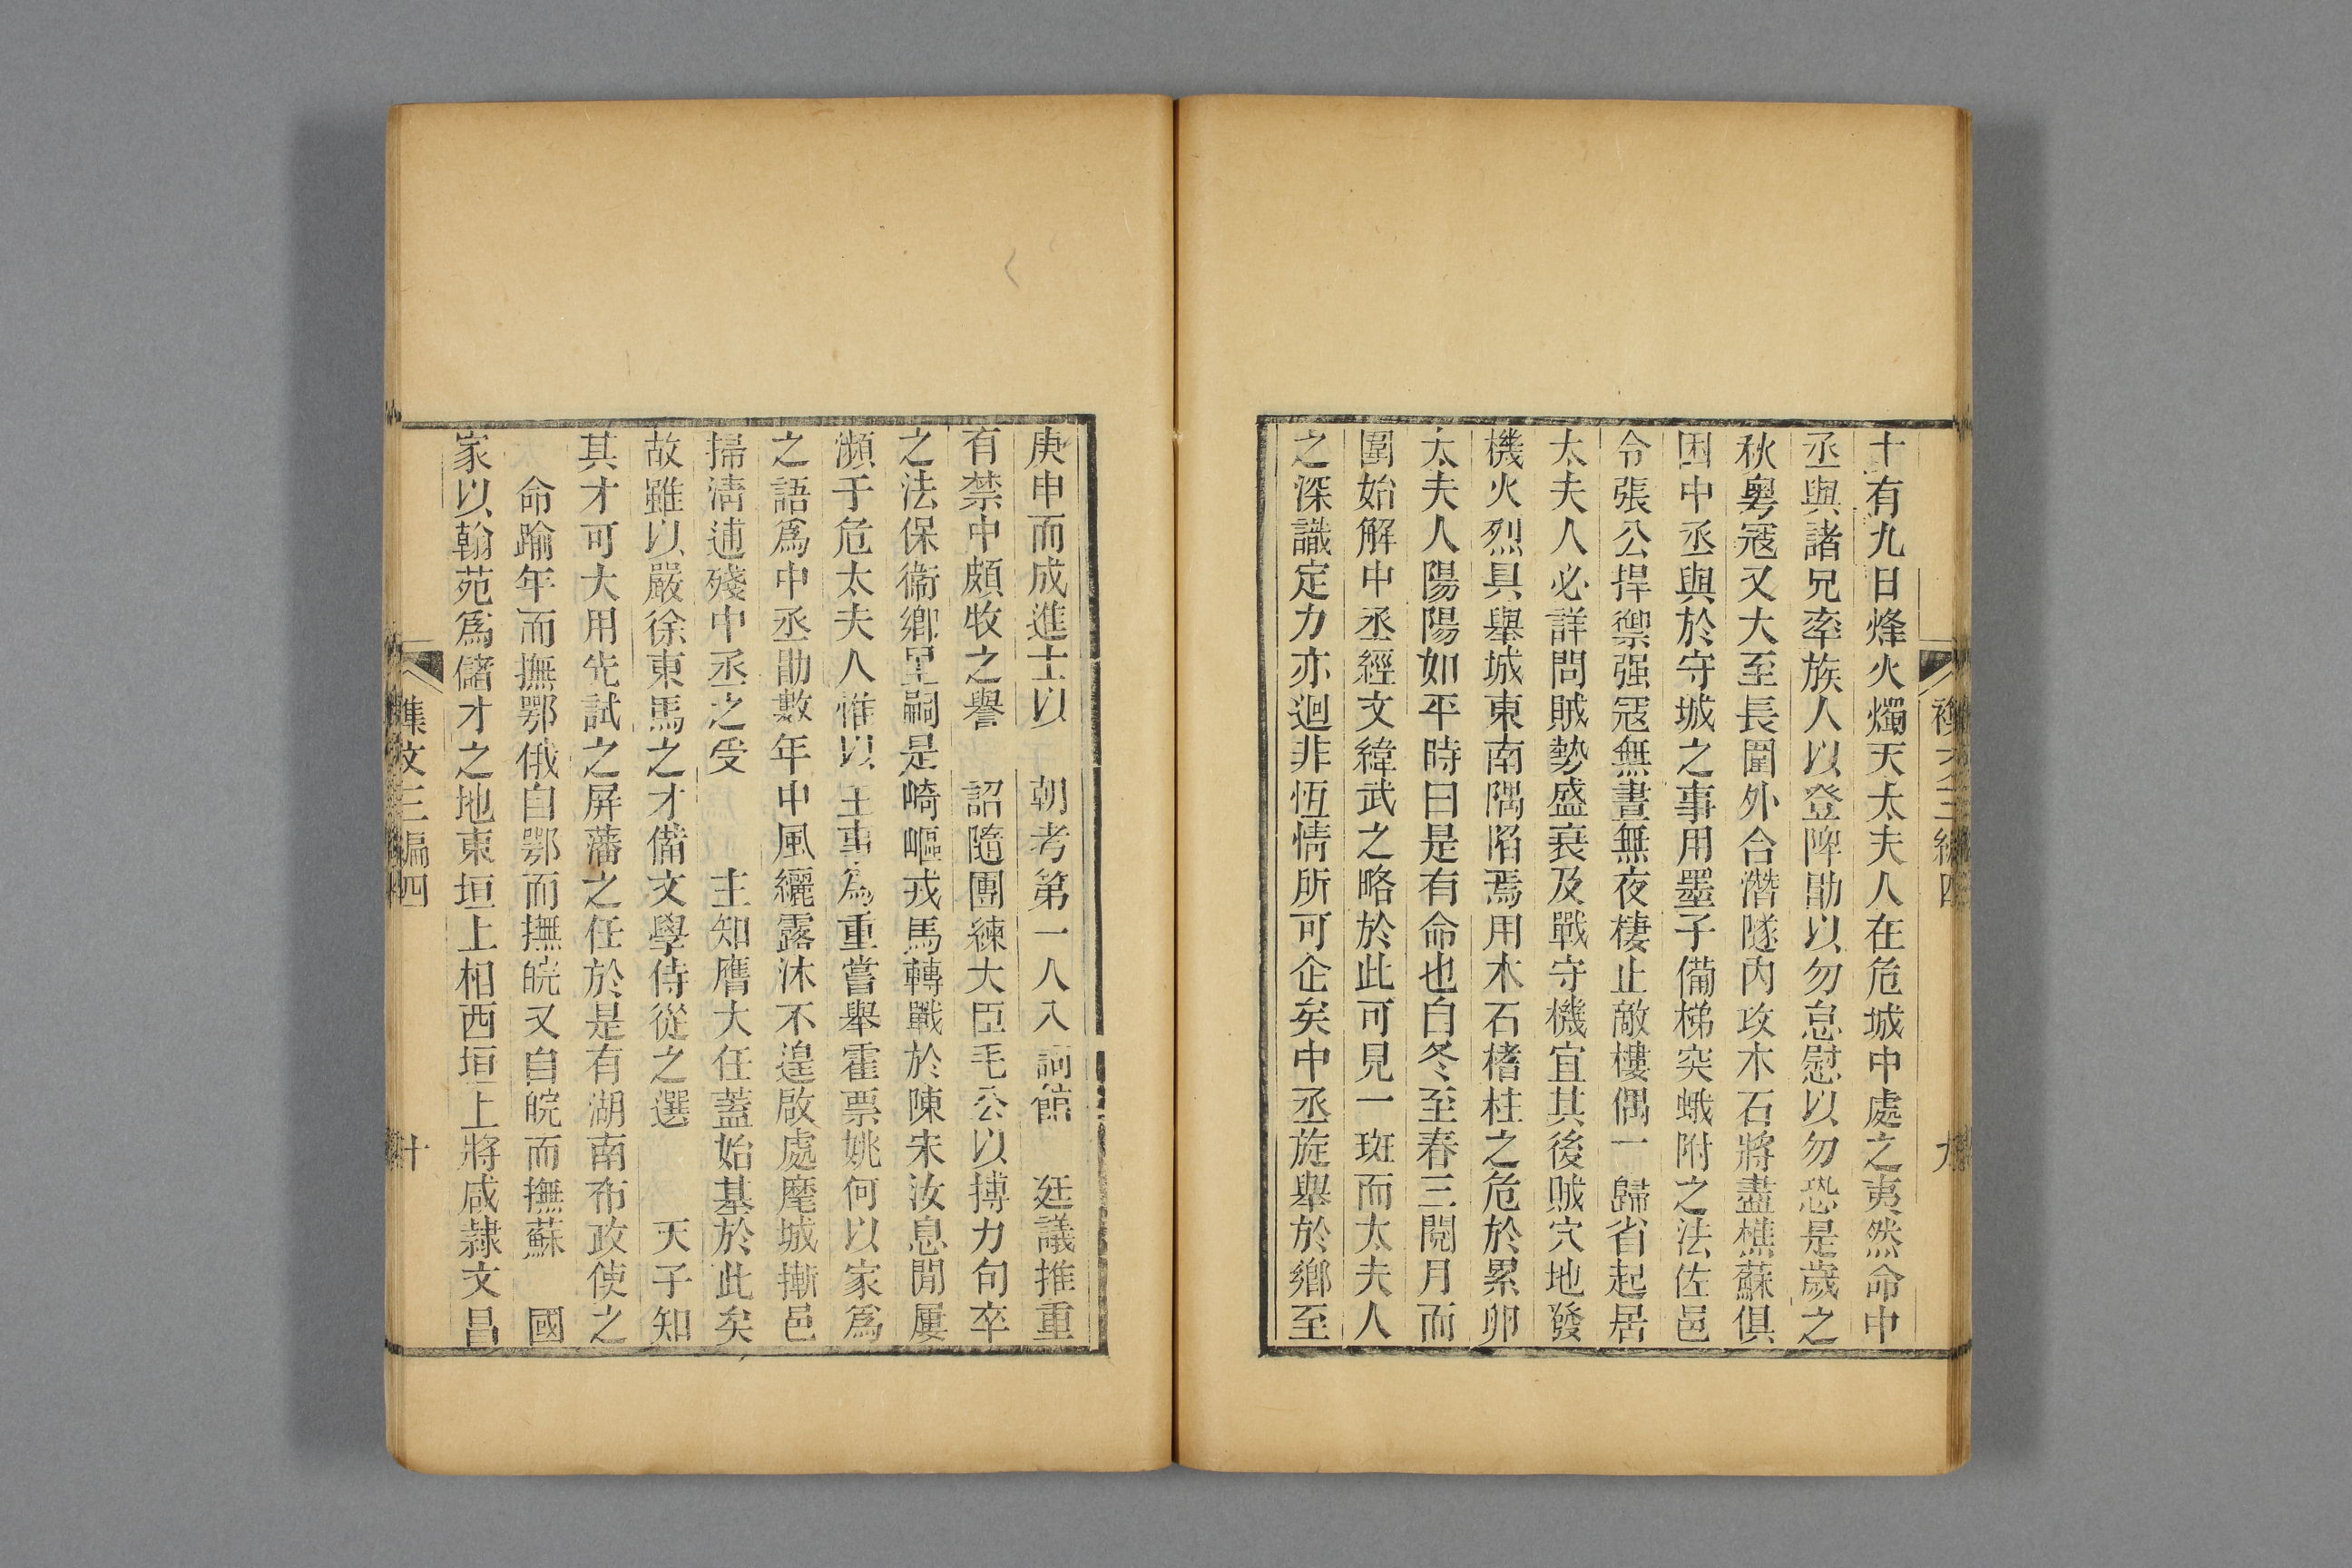 十有九日烽火燭天太夫人在危城中處之夷然命中
丞與諸兄率族人以登陴勖以勿怠慰以勿恐是歲之
秋粵寇又大至長圍外合潛隧內攻木石將盡樵蘇俱
困中丞與於守城之事用墨子備梯突蛾附之法佐邑
令張公捍禦强寇無晝無夜棲止敵樓偶一歸省起居
太夫人必詳問賊勢盛衰及戰守機宜其後賊穴地發
機火烈具舉城東南隅陷焉用木石楮柱之危於累卵
太夫人陽陽如平時曰是有命也自冬至春三閱月而
圍始解中丞經文緯武之略於此可見一斑而太夫人
之深識定力亦迥非恆情所可企矣中丞旋舉於鄉至
庚申而成進士以 朝考第一人入詞館 廷議推重
有禁中頗牧之譽 詔隨團練大臣毛公以摶力句卒
之法保衞鄉里嗣是崎嶇戎馬轉戰於陳宋汝息閒屢
瀕于危太夫人惟以王事爲重嘗舉霍票姚何以家爲
之語爲中丞勖數年中風纚露沐不遑啟處麾城摲邑
掃淸逋殘中丞之受 主知膺大任蓋始基於此矣
故雖以嚴徐東馬之才備文學侍從之選 天子知
其才可大用先試之屏藩之任於是有湖南布政使之
命踰年而撫鄂俄自鄂而撫皖又自皖而撫蘇 國
家以翰苑爲儲才之地東垣上相西垣上將咸隸文昌
集文三編四 十